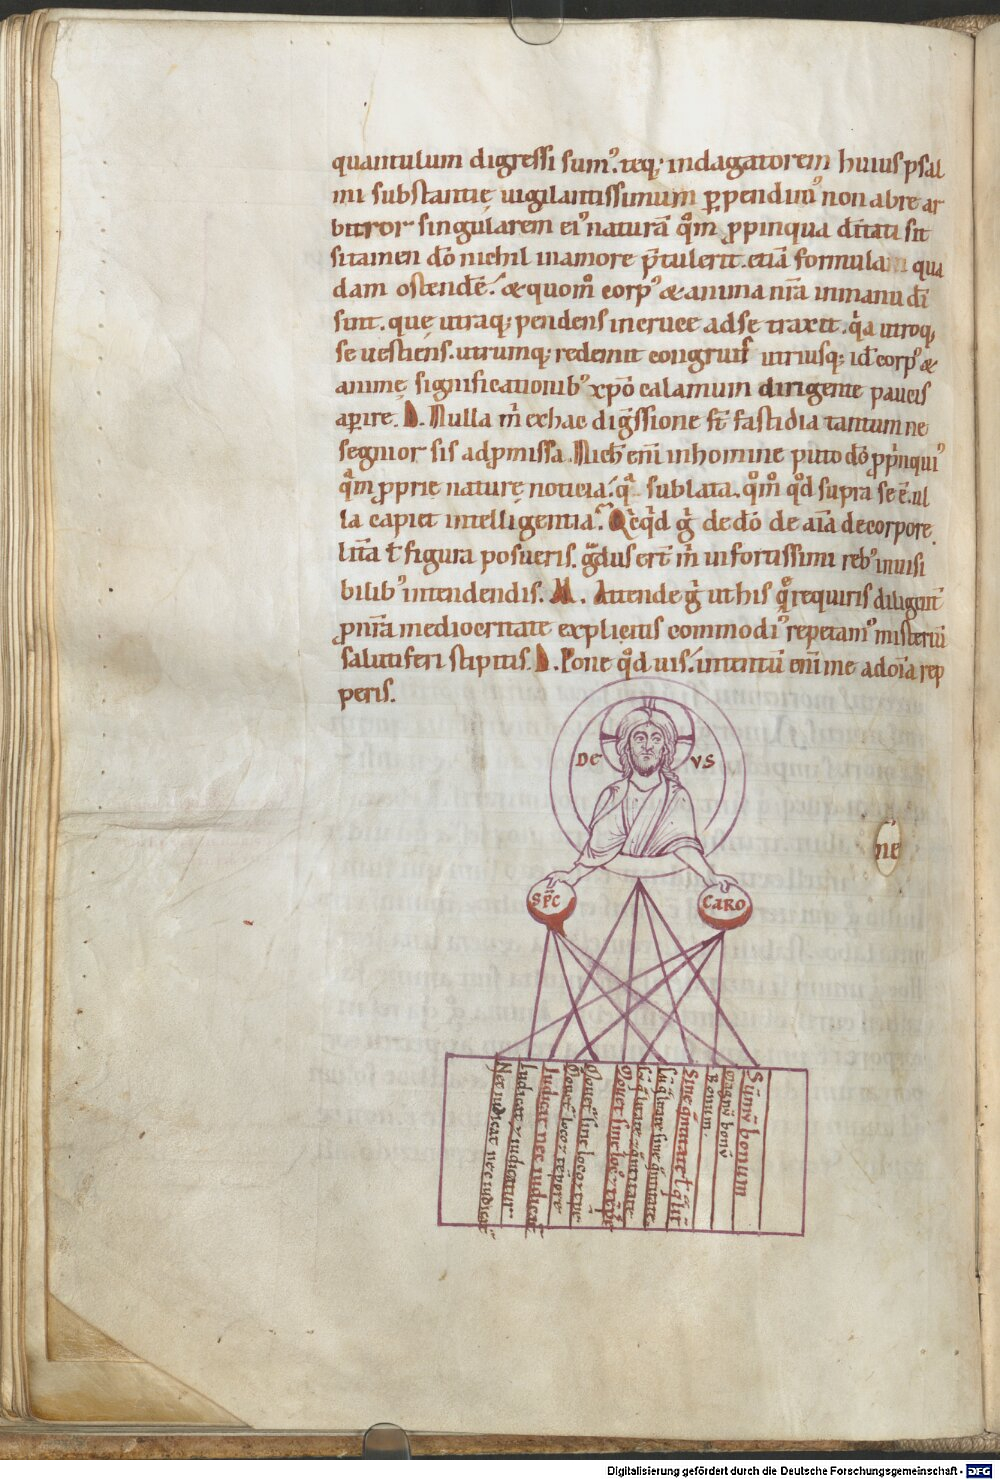 quantulum digressi sumꝰ. teq; indagatorem huius psal
mi substantię uigilantissimum ꝑpendimꝰ non abre ar
bitror singularem eiꝰ naturā qm̄ ꝓpinqua dītati sit
sitamen dō nichil inamore p̄tulerit. etiā formulam qua
dam ostendē. & quom̄ corpꝰ & anima nr̄a inmanu dī
sunt. quę utraq; pendens incruce adse traxit. q̄a utroq;
se uestiens. utrumq; redemit congruis utriusq; id ē corpꝰ &
animę significationibꝰ xp̄o calamum dirigente paucis
aꝑire. D. Nulla m̄ exhac digressione st̄ fastidia tantum ne
segnior sis adpromissa. Nich̄ enī inhomine puto dō ꝓpinquiꝰ
qm̄ ꝓprię naturę noticia. q̄ sublata. qm̄ qd̄ supra se ē. ul
la capiet intelligentia. Qcqd̄ g̊ de dō de aīa de corpore
litt̄a t̄ figura posueris. gradus ert̄ m̄ uifortissimi rebꝰ inuisi
bilibꝰ intendendis. M. Attende g̊ ut his q̄ requiris diligent̄
ꝓ nr̄a mediocritate explicitis commodiꝰ repetamꝰ misteriū
salutiferi stipitis. D. Pone qd̄ uis. intentū enī me adoīa rep
peris.
DE VS
ne
SP̄C CARO
Sūmū bonum
Magnū bonū
Bonum.
Sine q̄ntitate t̄ q̄lit̄
Cū q̄litate sine q̄ntitate
Cū q̄litate & q̄ntitate
Mouet sine loc̄ & tēpr̄
Mouet̄ sine loco & tp̄e
Mouet̄ loco & tēpore
Iudicat nec iudicat̄
Iudicat & iudicatur
Nec iudicat nec iudicat̄
Digitalisierung gefördert durch die Deutsche Forschungsgemeinschaft - DFG